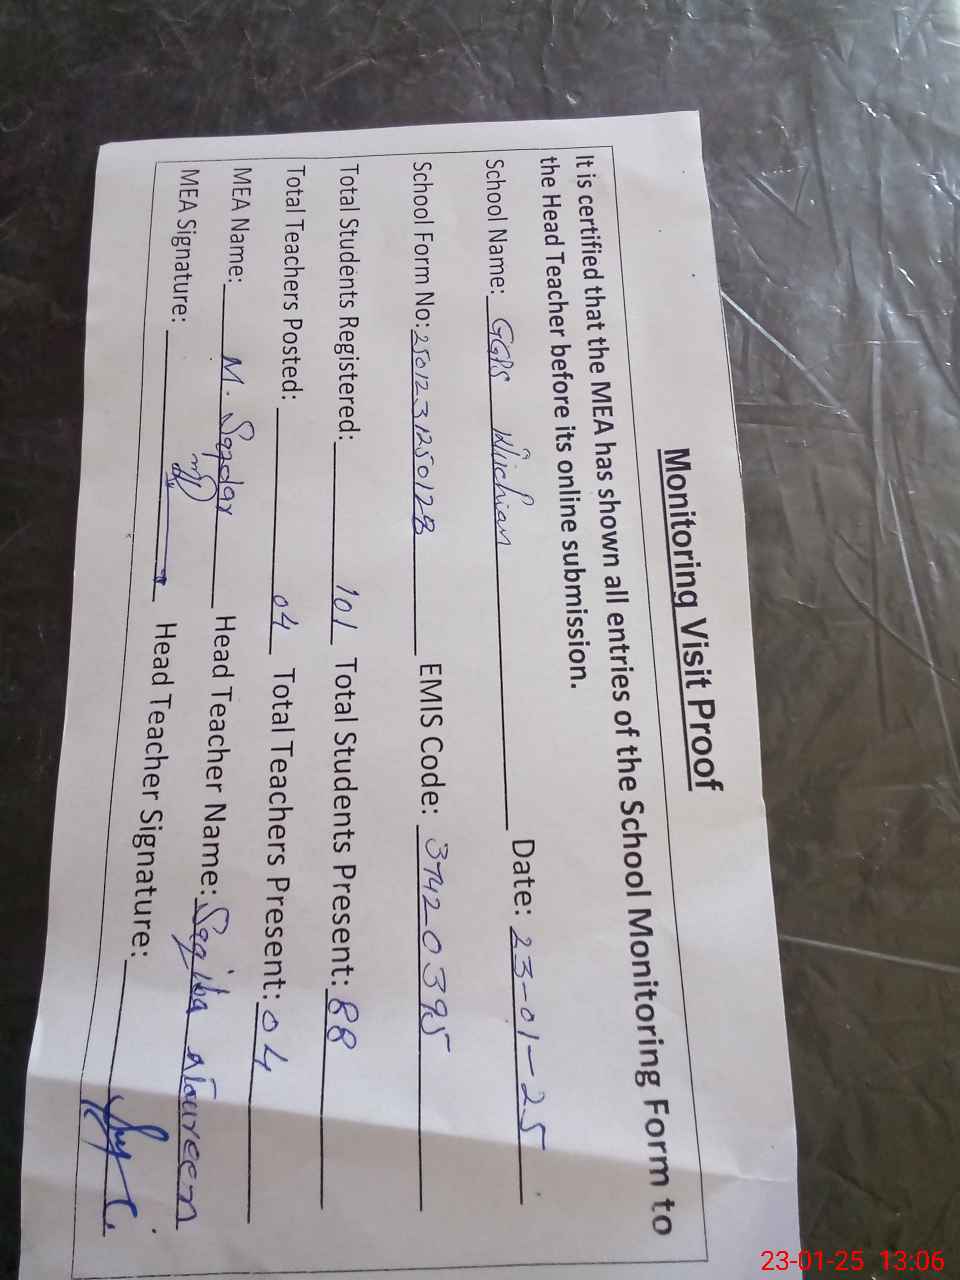 Monitoring Visit Proof
It is certified that the MEA has shown all entries of the School Monitoring Form to
the Head Teacher before its online submission.
School Name: GGPS Date: 23-01-25
School Form No: 2501231250128 EMIS Code: 37420395
Total Students Registered: 101 Total Students Present: 88
Total Teachers Posted: 04 Total Teachers Present: 04
MEA Name: M. Head Teacher Name: Noureen
MEA Signature: Head Teacher Signature:
23-01-25 13:06